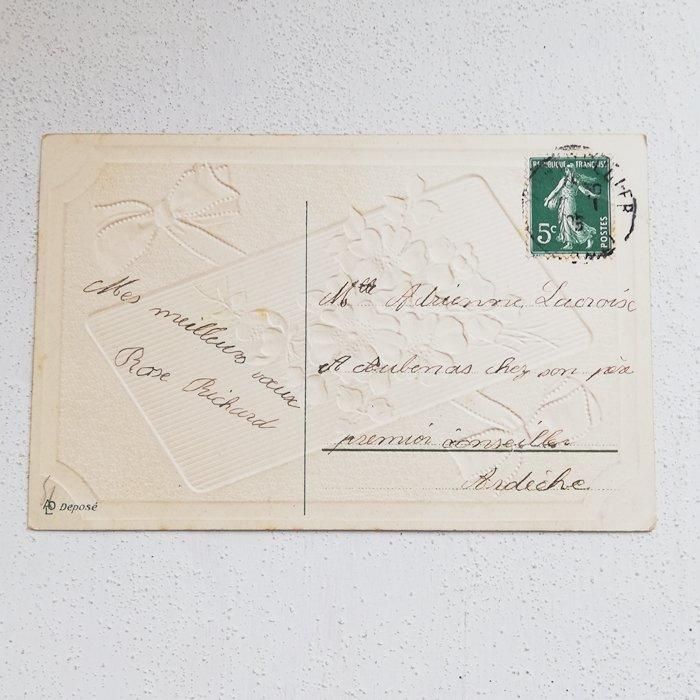 REPUBLIQUE FRANÇAISE
5c
POSTES
Mes meilleurs vœux
Rose Richard
Mlle Adrienne Lacroix
A Aubenas chez son père
premier conseiller
Ardèche
Déposé